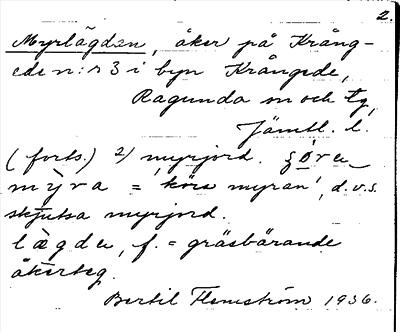 2.
Myrlägden, åker på Krång-
ede n:r 3 i byn Krångede,
Ragunda sn och tg,
Jämtl. l.
(forts.) 2) myrjord. ʒøra
mỳra = 'köra myran', d.v.s.
skjutsa myrjord.
lægda, f. = gräsbärande
åkerteg.
Bertil Flemström 1936.